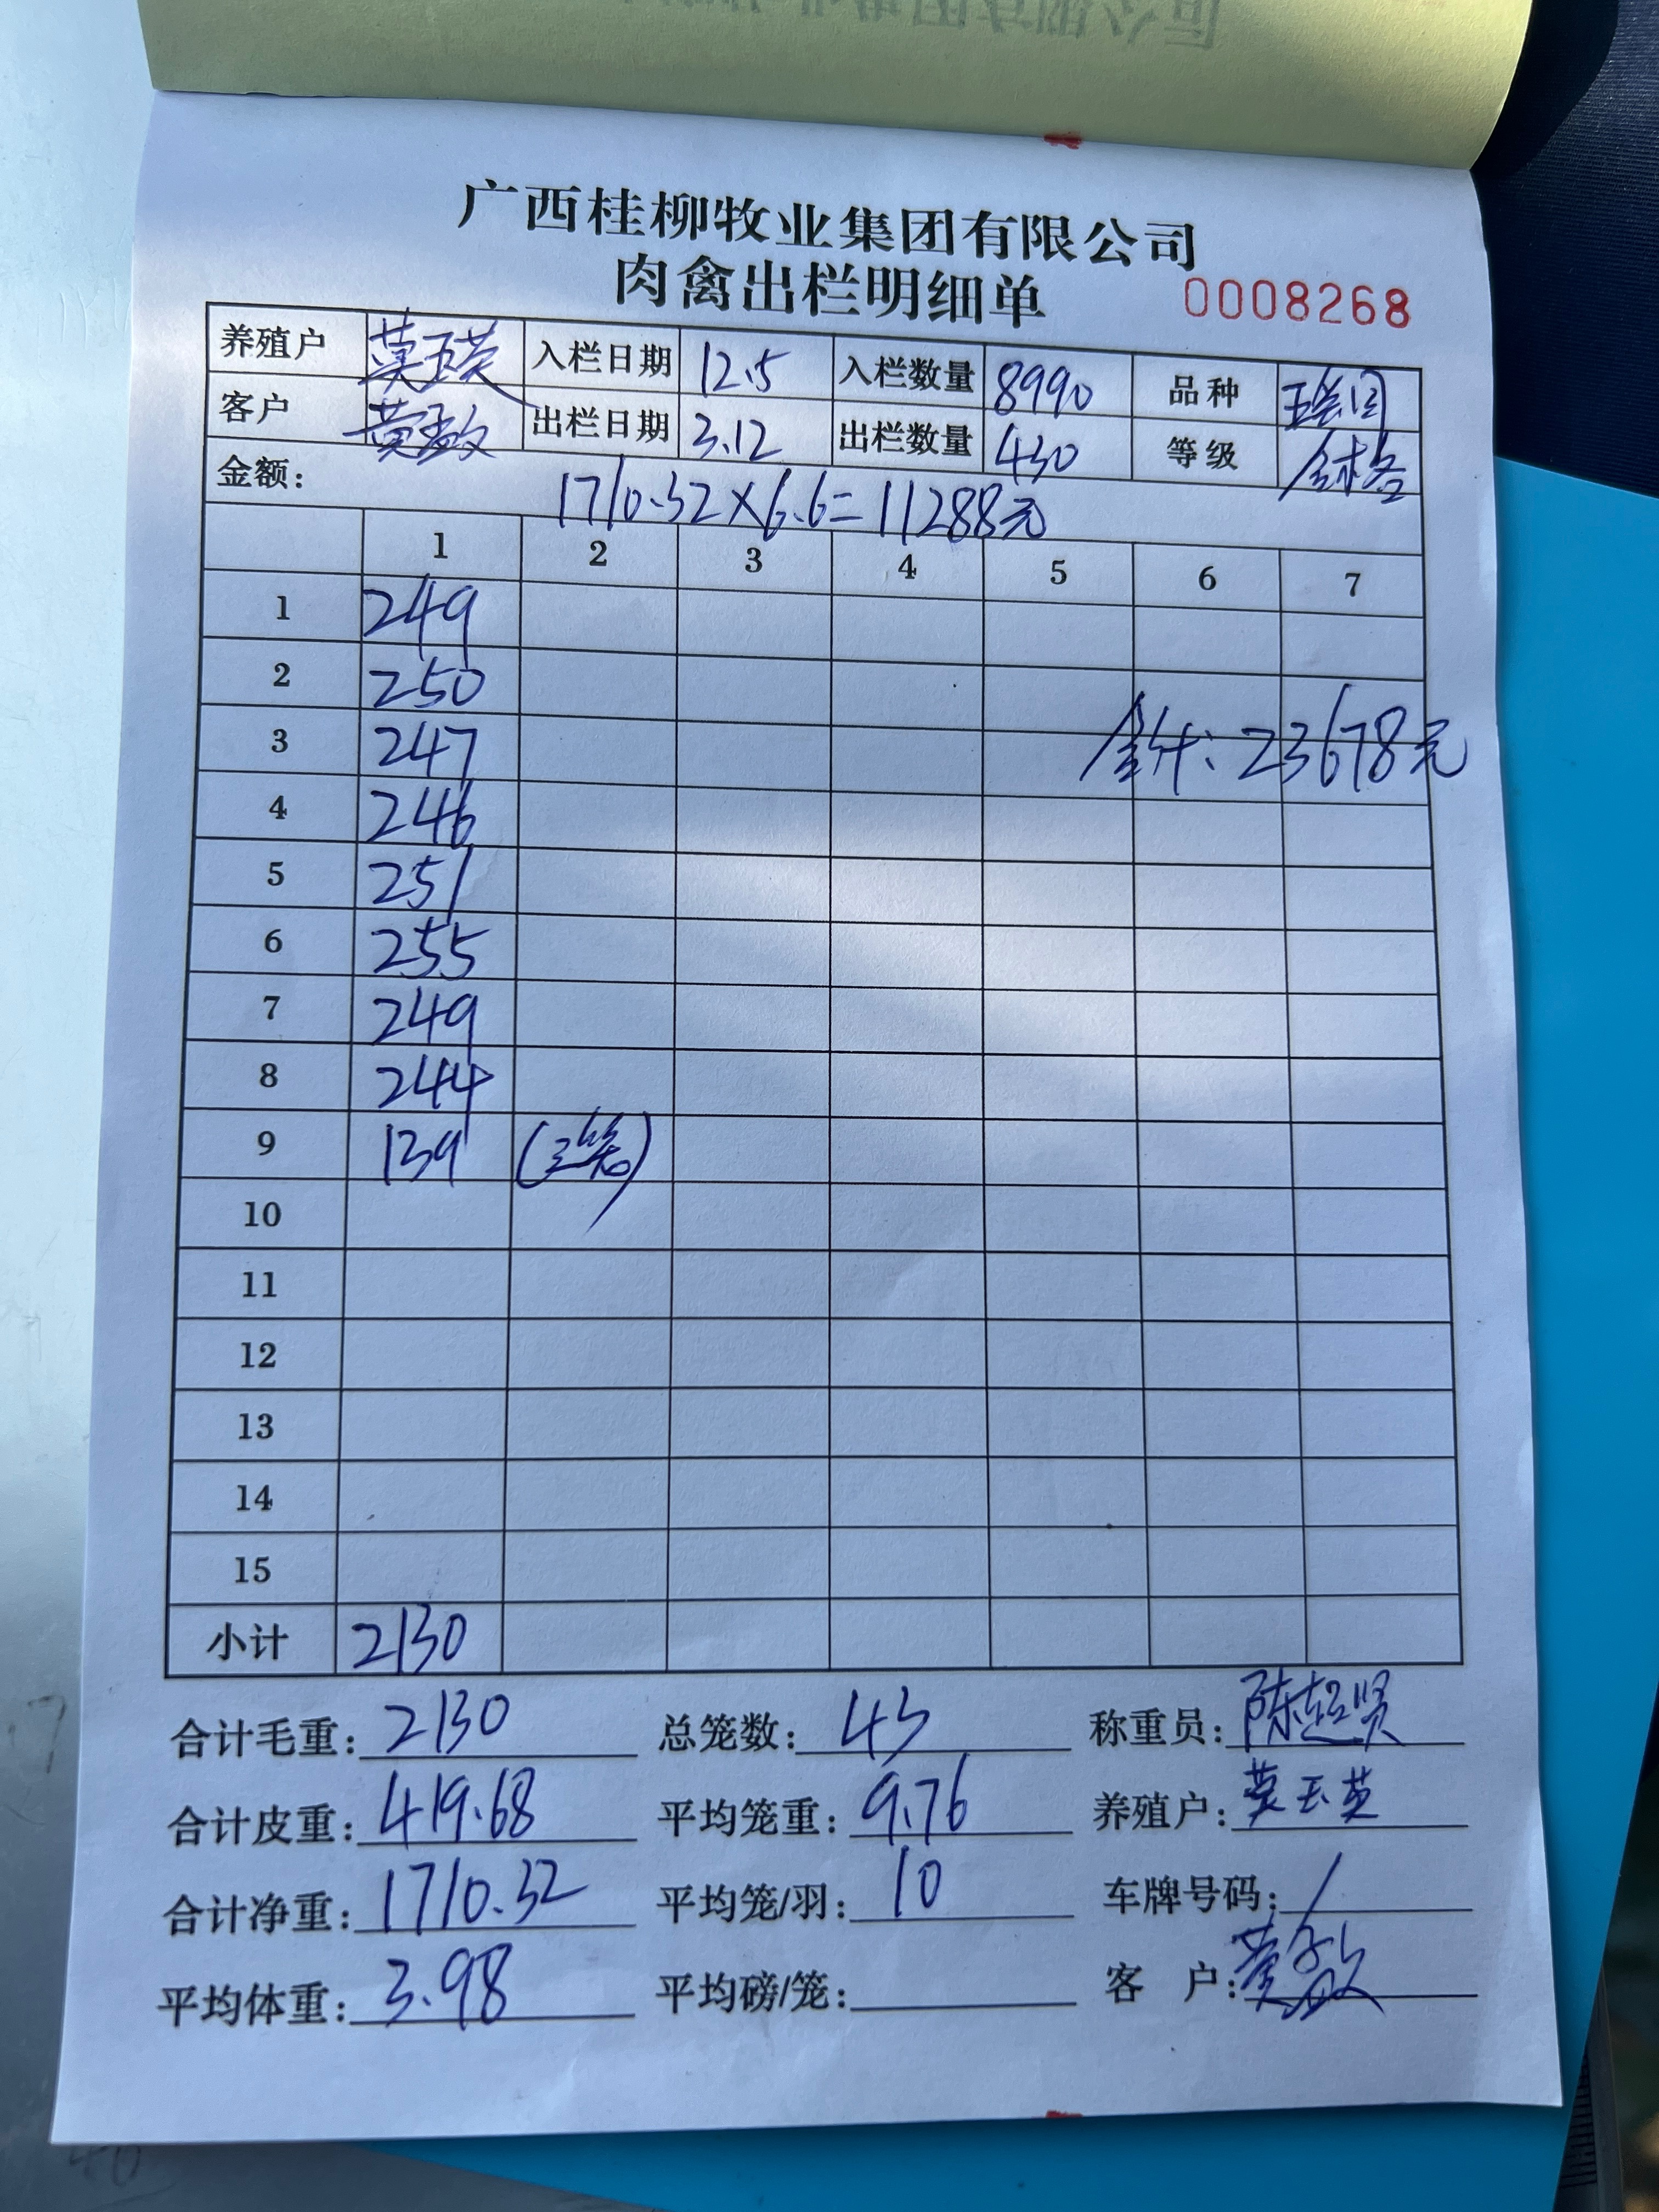 广西桂柳牧业集团有限公司
肉禽出栏明细单 0008268
养殖户 莫玉英 入栏日期 12.5 入栏数量 8990 品种
客户 黄敏 出栏日期 3.12 出栏数量 430 等级 合格
金额: 1710.32×6.6=11288元
1 2 3 4 5 6 7
1 249
2 250
3 247 合计:23678元
4 246
5 251
6 255
7 249
8 244
9 139 (三笼)
10
11
12
13
14
15
小计 2130
合计毛重: 2130 总笼数: 43 称重员: 陈超贤
合计皮重: 419.68 平均笼重: 9.76 养殖户: 莫玉英
合计净重: 1710.32 平均笼/羽: 10 车牌号码: /
平均体重: 3.98 平均磅/笼: 客 户: 黄敏